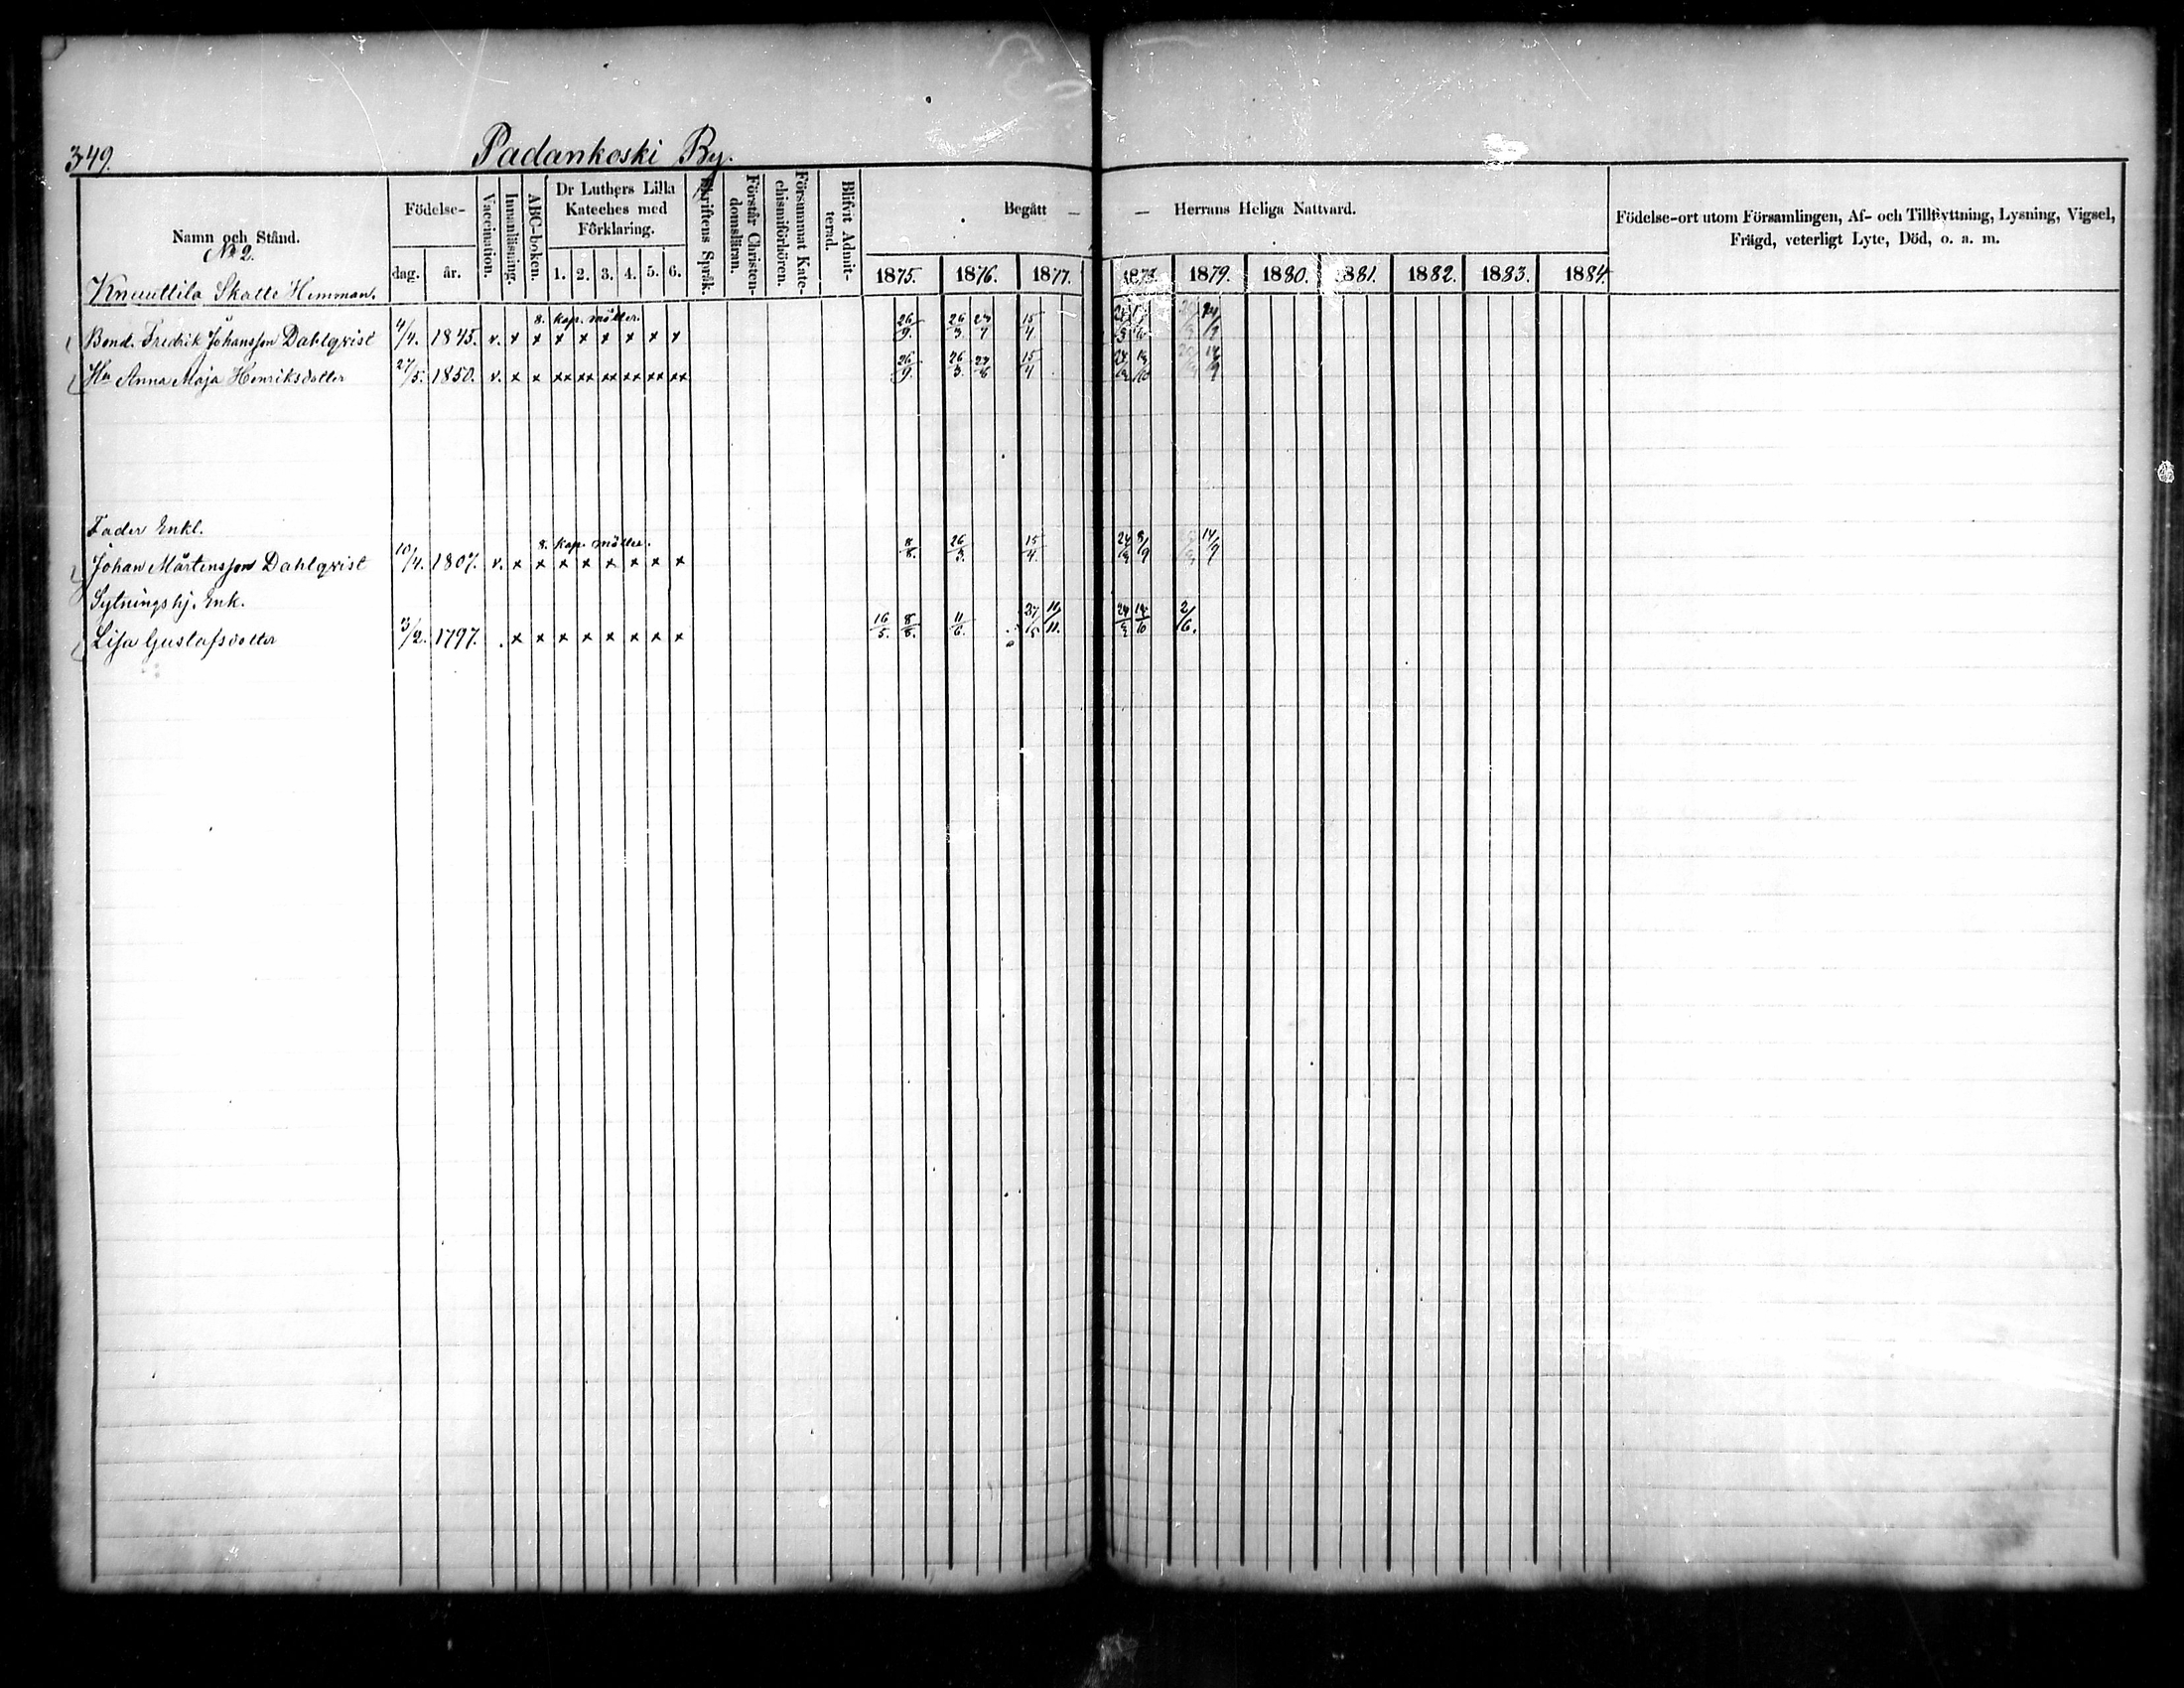 349.
Padankoski By.
Namn och Stånd.
No 2.
Knuuttila Skatte Hemman.
Födelse-
dag. år.
Vaccination.
Innanläsning.
ABC-boken.
Dr Luthers Lilla
Kateches med
Förklaring.
1. 2. 3. 4. 5. 6.
Skriftens Språk.
Förstår Christen-
domsläran.
Försummat Kate-
chismiförhören.
Blifvit Admit-
terad.
Begått — — Herrans Heliga Nattvard.
1875. 1876. 1877. 1878. 1879. 1880. 1881. 1882. 1883. 1884.
Födelse-ort utom Församlingen, Af- och Tillflyttning, Lysning, Vigsel,
Frägd, veterligt Lyte, Död, o. a. m.
8. kap. måtter.
Bond. Fredrik Johansson Dahlqvist 4/4. 1845. v. x x x x x x x x 26/9. 26/3 15/4
Hu Anna Maja Henriksdotter 27/5. 1850. v. x x xx xx xx xx xx xx 26/9. 26/3. 15/4
Fader Enkl.
8. kap. måtter.
Johan Mårtensson Dahlqvist 10/4. 1807. v. x x x x x x x x 8/8. 26/3. 15/4. 8/9 14/9
Sytningshj. Enk.
Lisa Gustafsdotter 3/2. 1797. . x x x x x x x x 16/5. 8/8. 11/6. 11/11. 2/6.